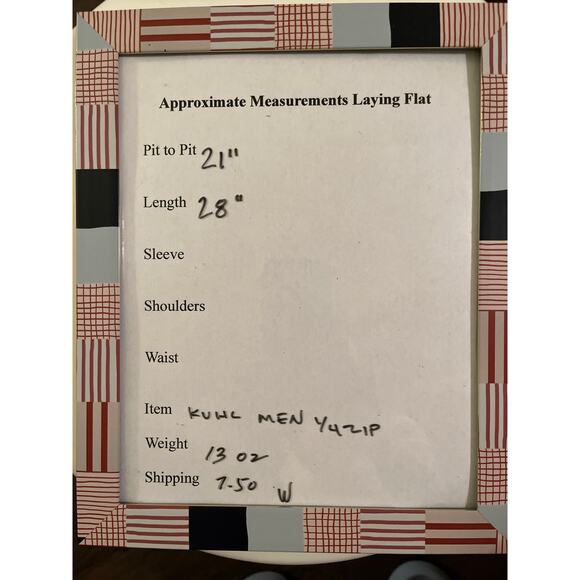 Approximate Measurements Laying Flat
Pit to Pit 21"
Length 28"
Sleeve
Shoulders
Waist
Item KUHL MEN 1/4 ZIP
Weight 13 oz
Shipping 7.50 W